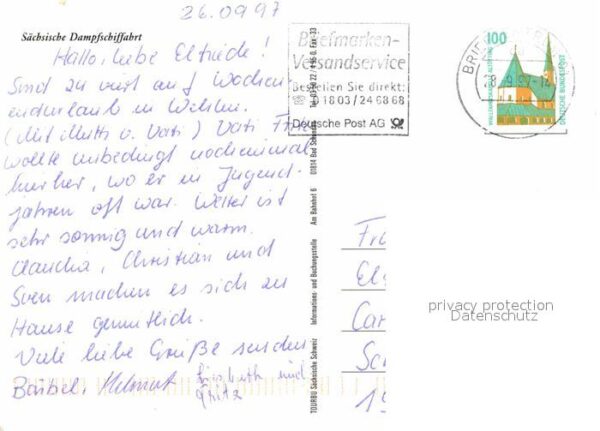 26.09.97
Sächsische Dampfschiffahrt
Hallo, liebe Elfriede!
Sind zu viert auf Wochen-
endurlaub in Wehlen.
(Mit Mutti u. Vati) Vati
wollte unbedingt nocheinmal
hierher, wo er in Jugend-
jahren oft war. Wetter ist
sehr sonnig und warm.
Claudia, Christian und
Sven machen es sich zu
Hause gemütlich.
Viele liebe Grüße senden
Bärbel, Helmut Lisbeth und
Fritz
Briefmarken-
Versandservice
Bestellen Sie direkt:
☎ 0 18 03/24 68 68
Deutsche Post AG
BRIE
28.-9.97-14
100
DEUTSCHE BUNDESPOST
TOURBU Sächsische Schweiz Informations- und Buchungsstelle Am Bahnhof 6 01814 Bad Schandau
Fr
El
Car
Sc
19
privacy protection
Datenschutz